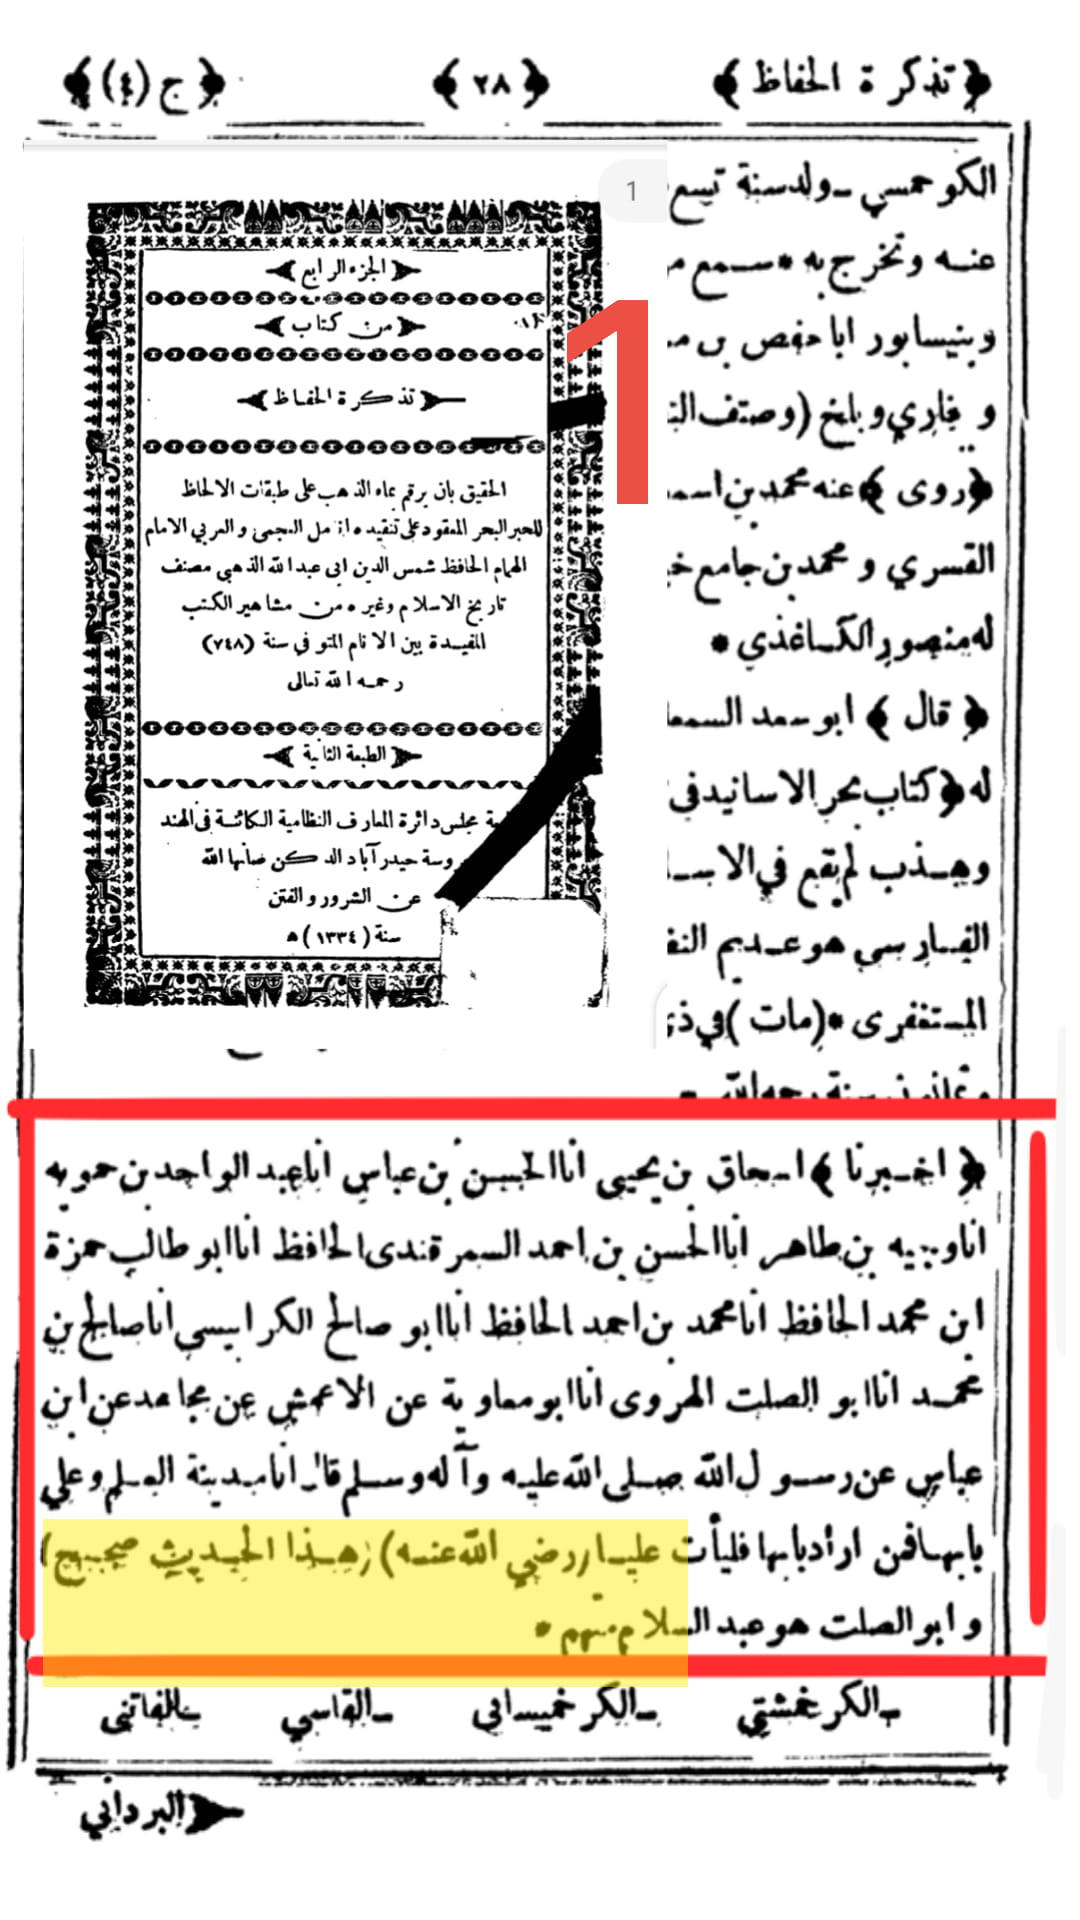 ﴿ تذكرة الحفاظ ﴾ ﴿ ٢٨ ﴾ ﴿ ج (٤) ﴾
1
الجزء الرابع
من كتاب
تذكرة الحفاظ
الحقيق بان يرقم بماء الذهب على طبقات الالحاظ
للحبر البحر المعقود على تنقيده انامل العجمي و العربي الامام
الهمام الحافظ شمس الدين ابى عبد الله الذهبي مصنف
تاريخ الاسلام وغيره من مشاهير الكتب
المفيدة بين الانام المتوفي سنة (٧٤٨)
رحمه الله تعالى
الطبعة الثانية
مجلس دائرة المعارف النظامية الكائنة فى الهند
حيدر آباد الدكن صانها الله
عن الشرور و الفتن
سنة (١٣٣٤) ه
1
الكوخمسي ـ ولد سنة تسع
عنه وتخرج به * سمع
وبنيسابور ابا حفص بن
و بخاري و بلخ (وصنف
﴿ روى ﴾ عنه محمد بن
القسري و محمد بن جامع
له منصور الكاغذي *
﴿ قال ﴾ ابو سعد
له ﴿ كتاب بحر الاسانيد فى
وهذب لم يقع في
الفارسي هو عديم
المستغفرى * (مات) في
وثمانين سنة رحمه الله
﴿ اخبرنا ﴾ اسحاق بن يحيى انا الحسن بن عباس انا عبد الواحد بن حمويه
انا وجيه بن طاهر انا الحسن بن احمد السمرقندى الحافظ انا ابو طالب حمزة
ابن محمد الحافظ انا محمد بن احمد الحافظ انا ابو صالح الكرابيسى انا صالح بن
محمد انا ابو الصلت الهروى انا ابو معاوية عن الاعمش عن مجاهد عن ابن
عباس عن رسول الله صلى الله عليه وآله وسلم قال انا مدينة العلم وعلي
بابها فمن اراد بابها فليأت عليا (رضي الله عنه) (هذا الحديث صحيح)
و ابو الصلت هو عبد السلام متهم *
ـ الكرخشتي ـ الكرخميسابى ـ القاسي ـ الفاتنى
البرداني